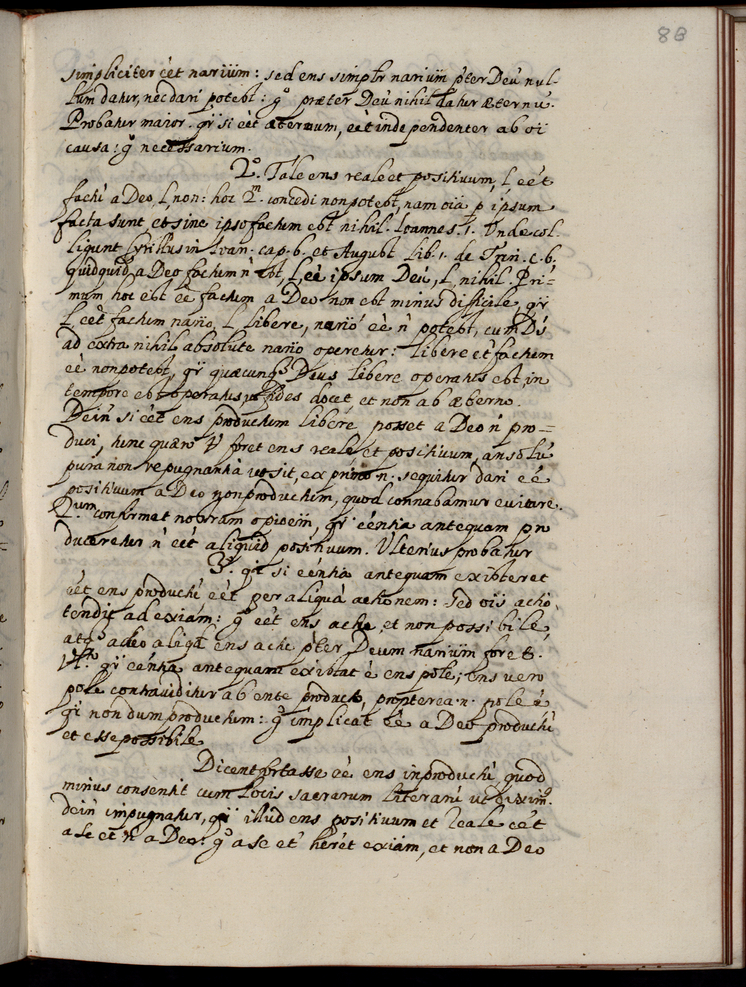 88
simpliciter eēt nariūm: sed ens simplr nariūm pter Deū nul-
lum datur, nec dari potest: gº præter Deū nihil datur æternū.
Probatur maior. qr̄ si eēt æternum, eēt independenter ab oī
causa: gº necessarium.
2º. Tale ens reale et positiuum, l, eēt
factū a Deo, l, non: hoc 2m. concedi non potest, nam oīa p ipsum
facta sunt, et sine ipso factum est nihil. Ioannes. 1. Unde col
ligunt Cyrillus in Ioan. cap. 6. et August lib. 1. de Trin. c. 6.
quidquid a Deo factum n̄ est, l, eē ipsum Deū, l, nihil. Pri-
mum hoc est eē factum a Deo non est minus difficile, qr̄
l, eēt factum nariō, l, libere, nariō eē n̄ potest, cum Ds̄
ad extra nihil absolute nariō operetur: libere et factum
eē non potest, qr̄ quæcunqʒ Deus libere operatus est in
tempore est operatus, ut fides docet et non ab æterno.
Dein̄ si eēt ens productum libere, posset a Deo n̄ pro-
duci, hinc quæro foret ens reale et positiuum, an solū
pura non repugnantia sit, ex primo n. sequitur dari eē
positiuum a Deo non productum, quod connabamur euitare.
2um confirmat nostram opioēm, qr̄ eēntia antequam pro
duceretur n̄ eēt aliquid positiuum. Ulterius probatur
3º. qr̄ si eēntia antequam existeret
eēt ens productū eēt per aliquā actionem: sed oīs actio
tendit ad exiām: gº eēt ens actu, et non possibile,
atqʒ adeo aliqd ens actu pter Deum nariūm foret.
4º. qr̄ eēntia antequam existat ē ens pole; ens vero
pole contradiditur ab ente producto, propterea .n. pole ē
qr̄ nondum productum: gº implicat eē a Deo productū
et esse possibile
Dicent fortasse eē ens inproductū quod
minus consentit cum locis sacrarum literarū ut diximº.
dein̄ impugnatur, qr̄ illud ens positiuum et reale eēt
a se et n̄ a Deo: gº a se et heret exiām, et non a Deo